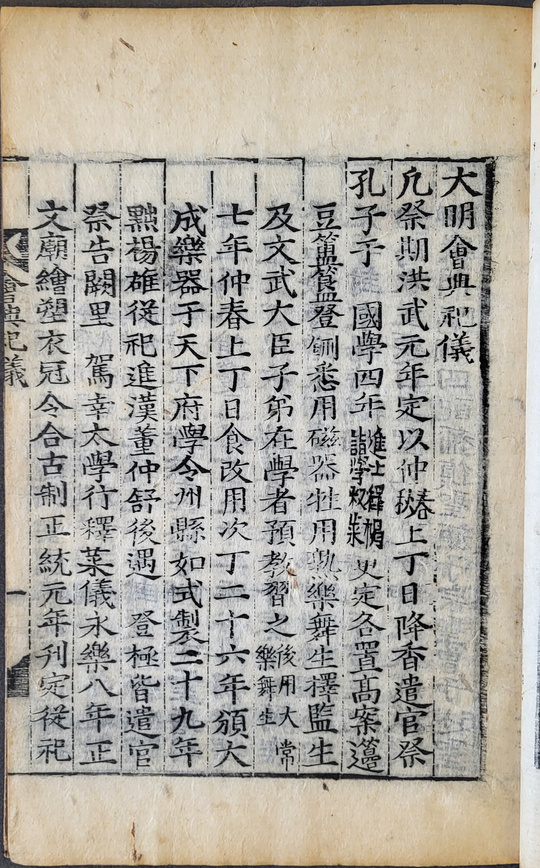 大明會典祀儀
凡祭期洪武元年定以仲春秋上丁日降香遣官祭
孔子于 國學四年進士釋褐詣學釋菜更定各置高案籩
豆簠簋登鉶悉用磁器牲用熟樂舞生擇監生
及文武大臣子弟在學者預教習之後用大常樂舞生
七年仲春上丁日食改用次丁二十六年頒大
成樂器于天下府學令州縣如式製二十九年
黜楊雄從祀進漢董仲舒後遇 登極皆遣官
祭告闕里 駕幸太學行釋菜儀永樂八年正
文廟繪塑衣冠令合古制正統元年刊定從祀
會典祀儀
一